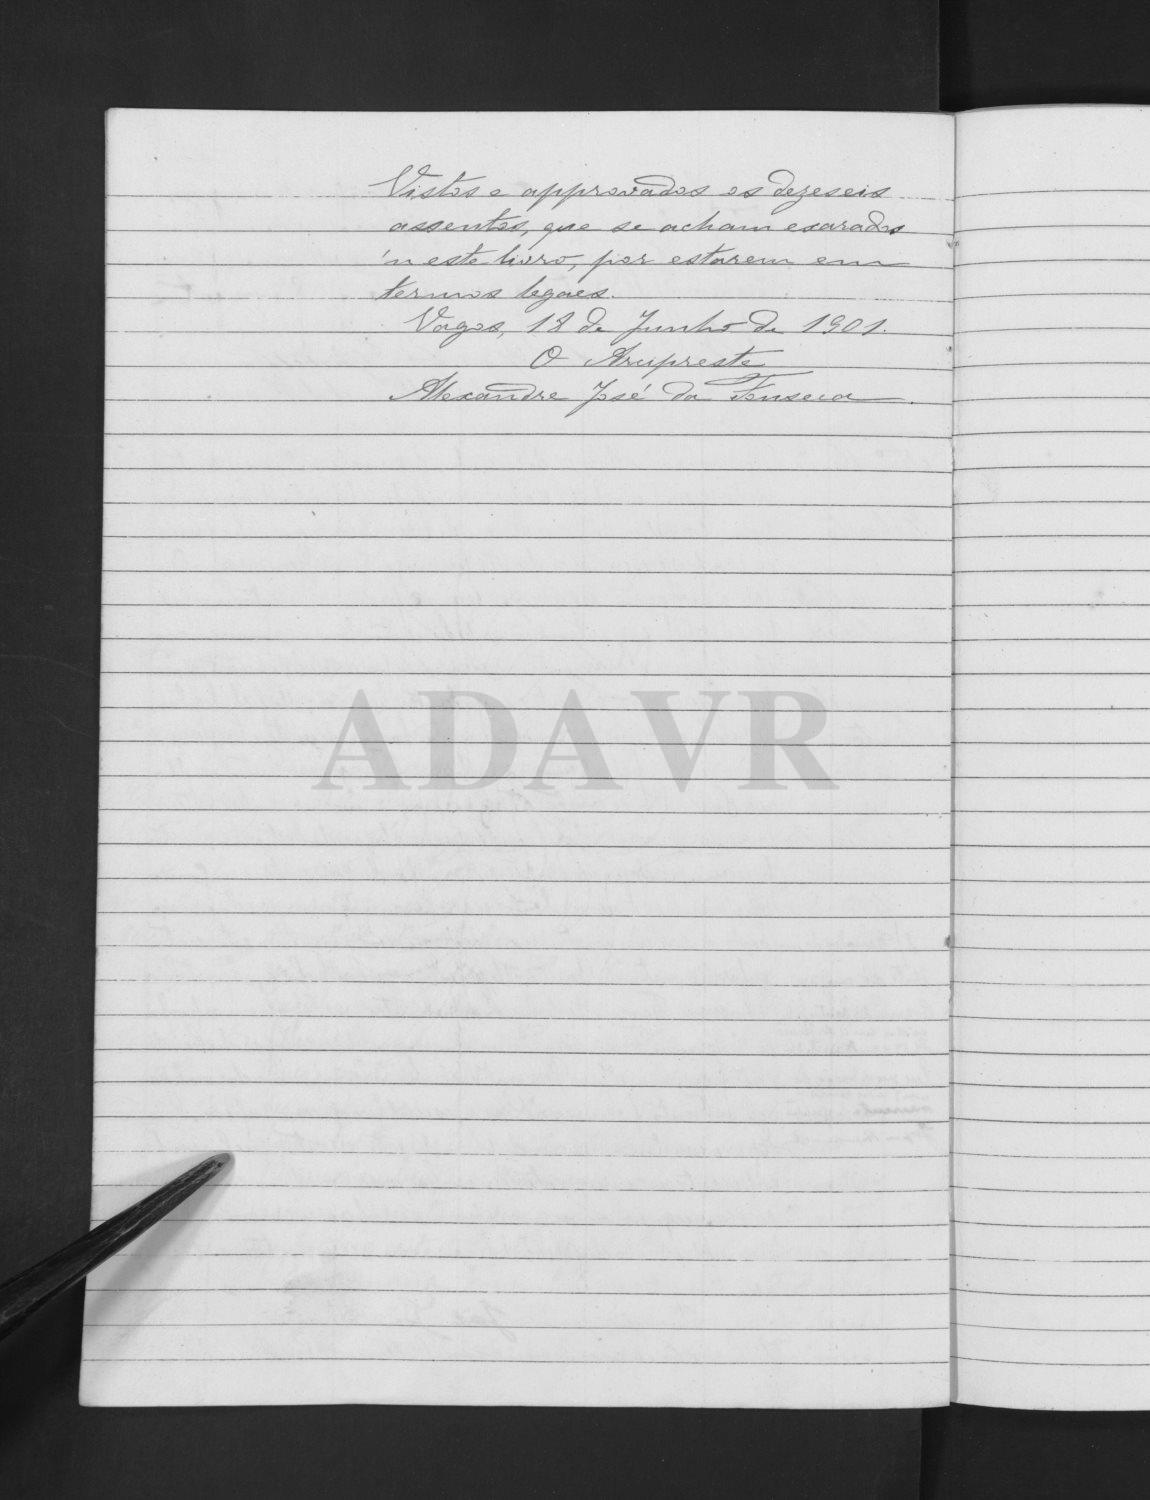 Vistos e approvados os dezeseis
assentos, que se acham exarados
'n este livro, por estarem em
termos legaes.
Vagos, 18 de Junho de 1901.
O Arcipreste
Alexandre José da Fonseca.
ADAVR